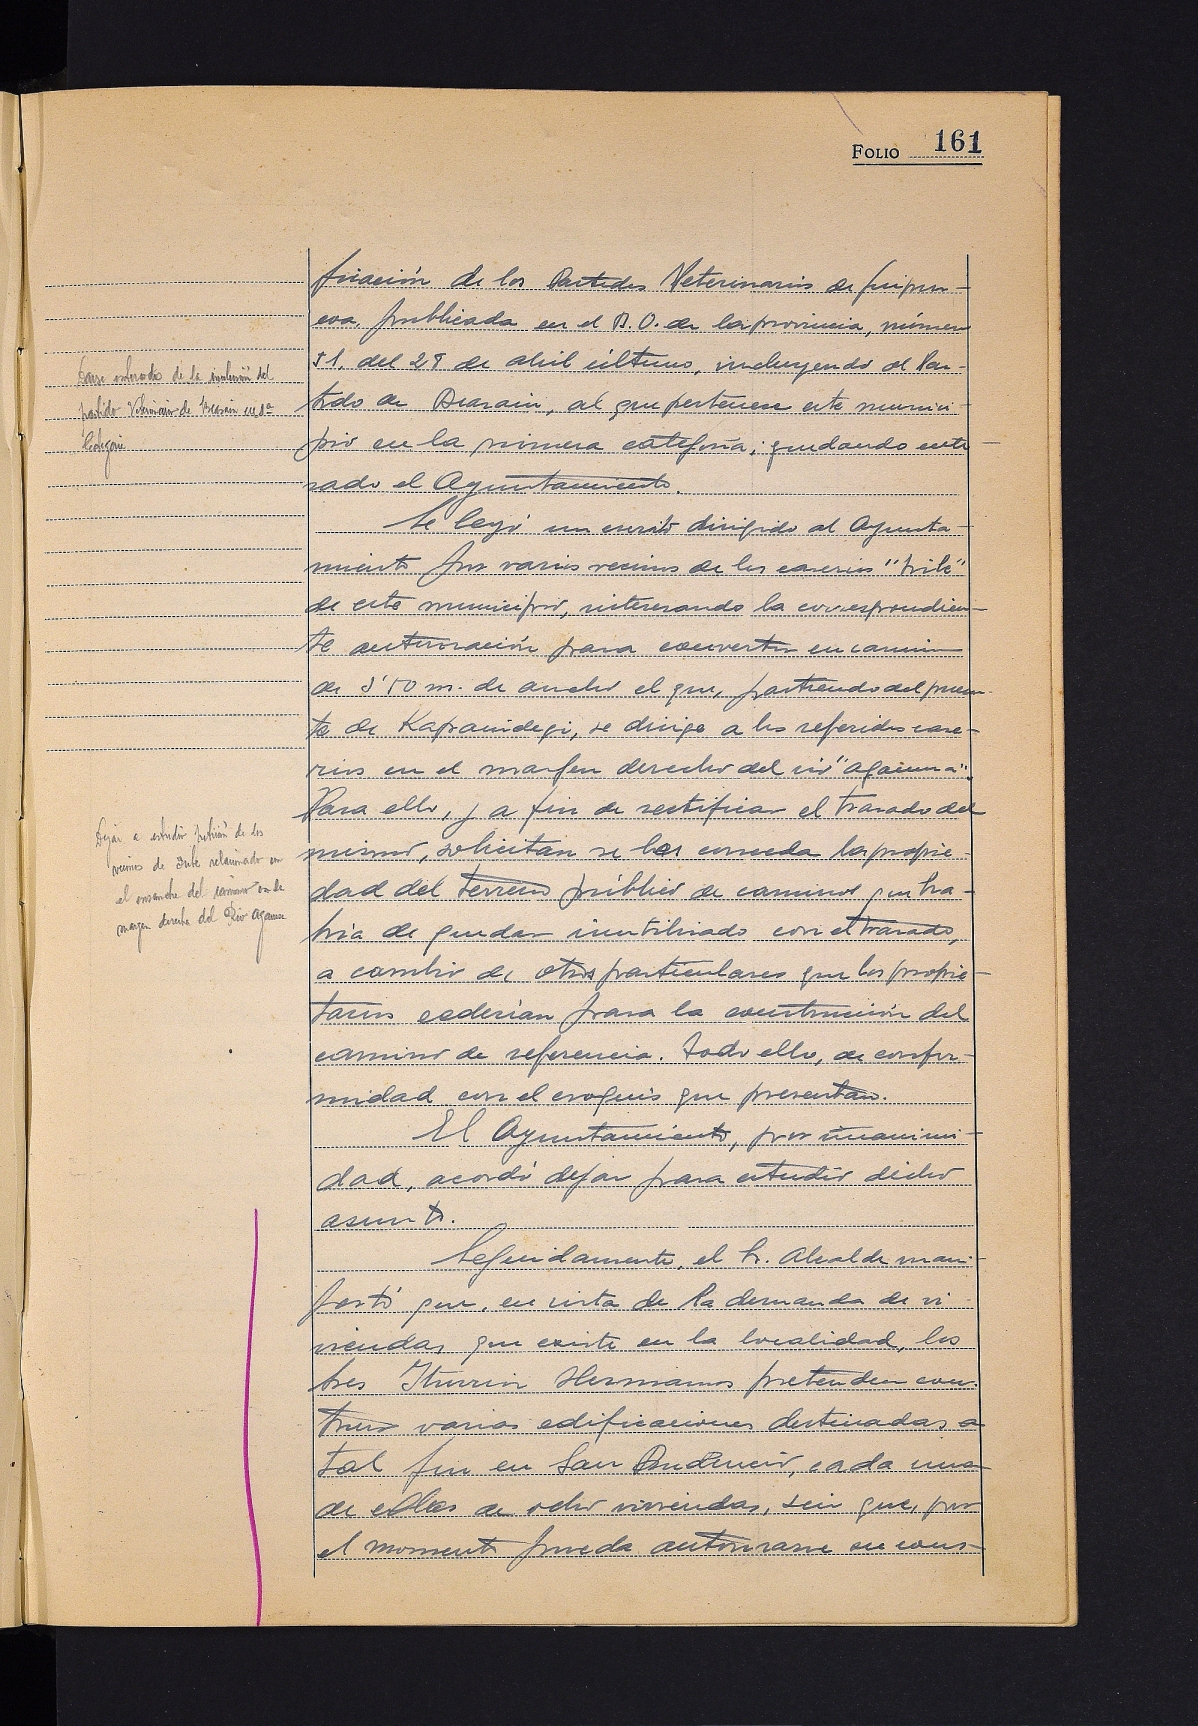 FOLIO 161
ficación de los Partidos Veterinarios de Guipúz-
coa, publicada en el B.O. de la provincia, número
51, del 29 de abril último, incluyendo al Par-
tido de Beasain, al que pertenece este munici-
pio en la primera categoría; quedando ente-
rado el Ayuntamiento.
Se leyó un escrito dirigido al Ayunta-
miento por varios vecinos de los caserios
de este municipio, interesando la correspondien-
te autorización para convertir en camino
de 3'50 m. de ancho el que, partiendo del puen-
te de Kapanidegi, se dirige a los referidos case-
rios en el margen derecho del río "Agauna".
Para ello, y a fin de rectificar el trazado del
mismo, solicitan se les conceda la propie-
dad del terreno público de caminos que ha-
bría de quedar inutilizado con el trazado,
a cambio de otros particulares que los propie-
tarios cederian para la construcción del
camino de referencia. Todo ello, de confor-
midad con el croquis que presentan.
El Ayuntamiento, por unanimi-
dad, acordó dejar para estudio dicho
asunto.
Seguidamente, el Sr. Alcalde mani-
festó que, en vista de la demanda de vi-
viendas que existe en la localidad, los
Sres Iturrioz Hermanos pretenden cons-
truir varias edificaciones destinadas a
tal fin en San Prudencio, cada una
de ellas de ocho viviendas, sin que, por
el momento pueda autorizarse su cons-
Darse enterado de la inclusión del
partido Veterinario de Beasain en 1ª
Categoría
Dejar a estudio petición de los
vecinos de relacionado con
el ensanche del camino en la
margen derecha del Río Agauna